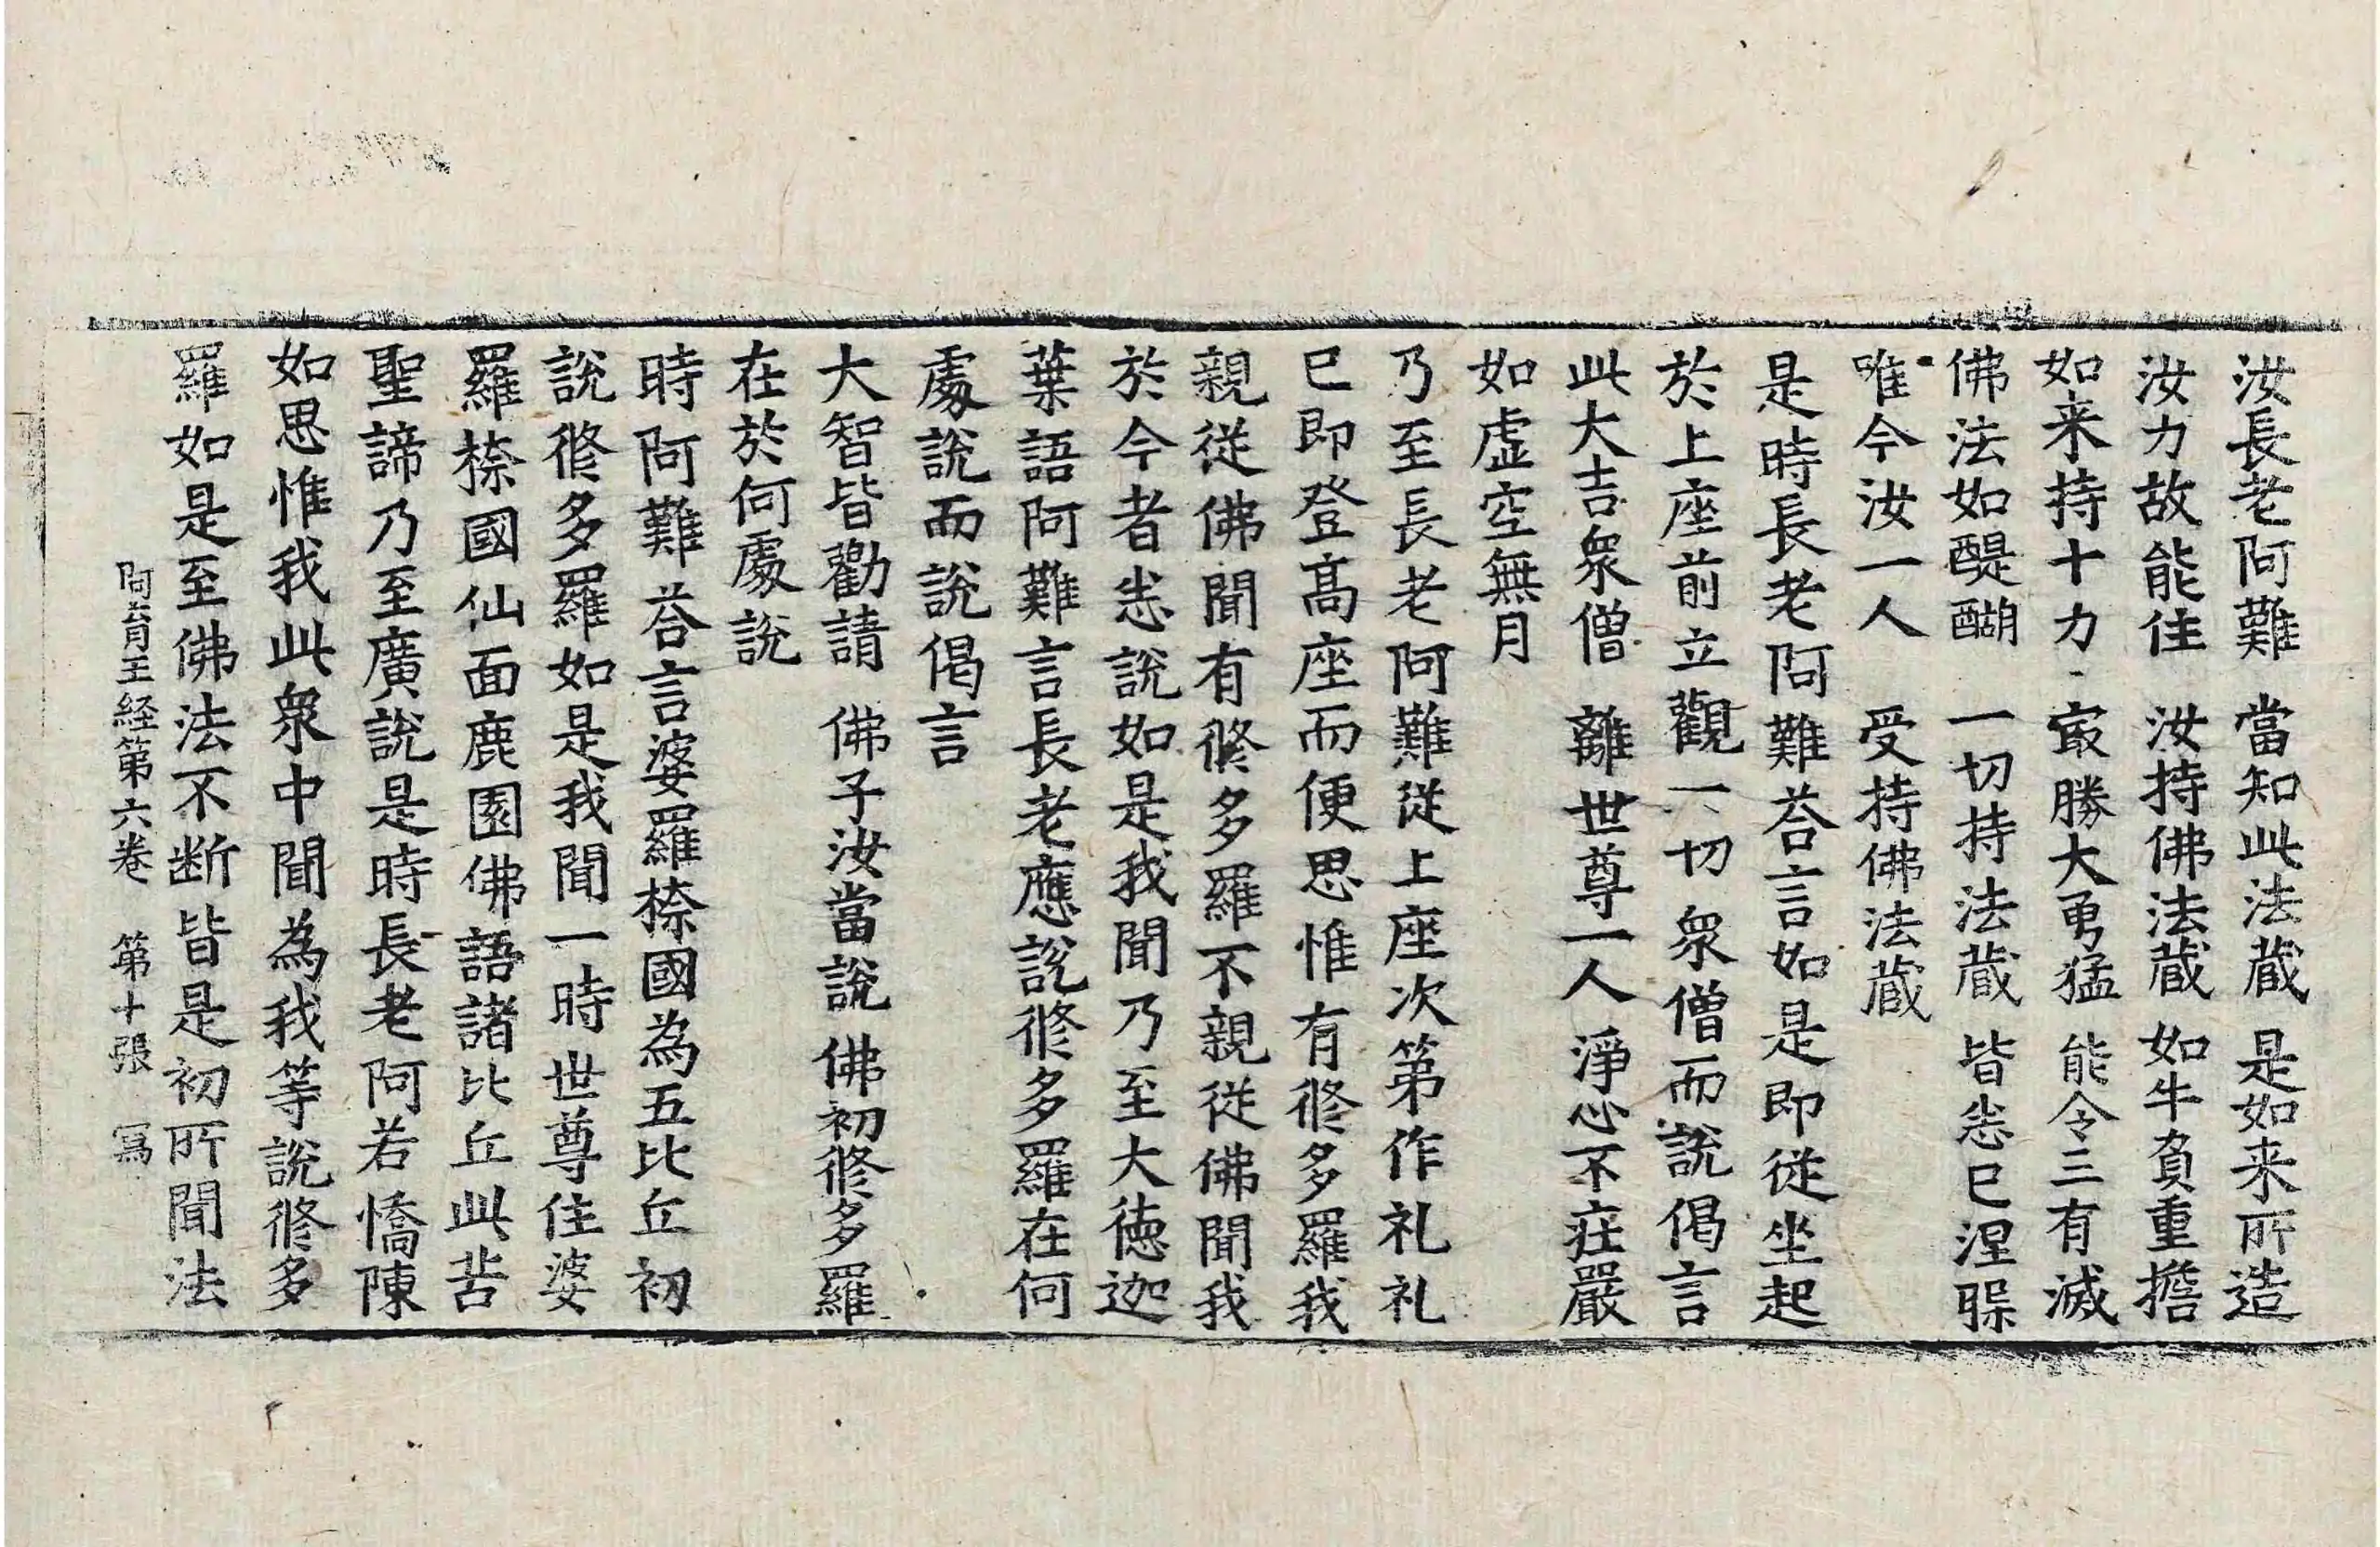 汝長老阿難　當知此法蔵　是如来所造
汝力故能住　汝持佛法蔵　如牛負重擔
如来持十力　冣勝大勇猛　能令三有滅
佛法如醍醐　一切持法蔵　皆悉已涅槃
唯今汝一人　受持佛法蔵
是時長老阿難荅言如是即從坐起
於上座前立觀一切衆僧而說偈言
此大吉衆僧　離世尊一人　淨心不莊嚴
如虛空無月
乃至長老阿難從上座次第作礼礼
已即登髙座而便思惟有修多羅我
親從佛聞有修多羅不親從佛聞我
於今者悉說如是我聞乃至大德迦
葉語阿難言長老應說修多羅在何
處說而說偈言
大智皆勸請　佛子汝當說　佛初修多羅
在於何處說
時阿難荅言婆羅㮈國為五比丘初
說修多羅如是我聞一時世尊住婆
羅㮈國仙面鹿園佛語諸比丘此苦
聖諦乃至廣說是時長老阿若憍陳
如思惟我此衆中聞為我等說修多
羅如是至佛法不断皆是初所聞法
阿育王経第六卷　第十張　寫